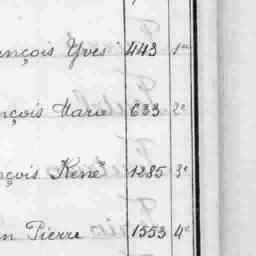 ançois Yves 443 1er
nçois Marie 633 2e
çois René 1285 3e
n Pierre 1553 4e